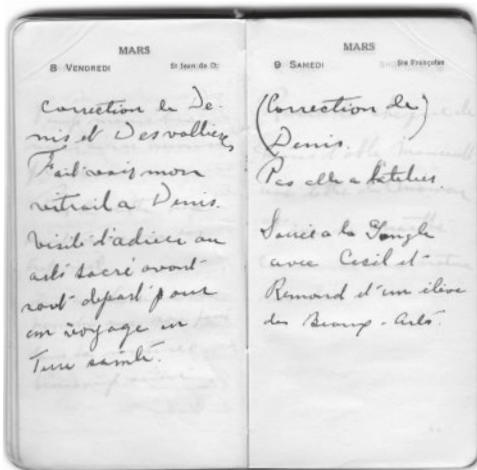 MARS
8 VENDREDI St Jean de D:
correction de De-
nis et Desvallières
Fait voir mon
à Denis.
visite d'adieu au
arts sacré avant
départ pour
un voyage en
Terre sainte.
MARS
9 SAMEDI Ste Françoise
(Correction de)
Denis.
Pas allé a l'atelier.
Soirée a la Jungle
avec Cecil et
Remond et un élève
des Beaux-Arts.